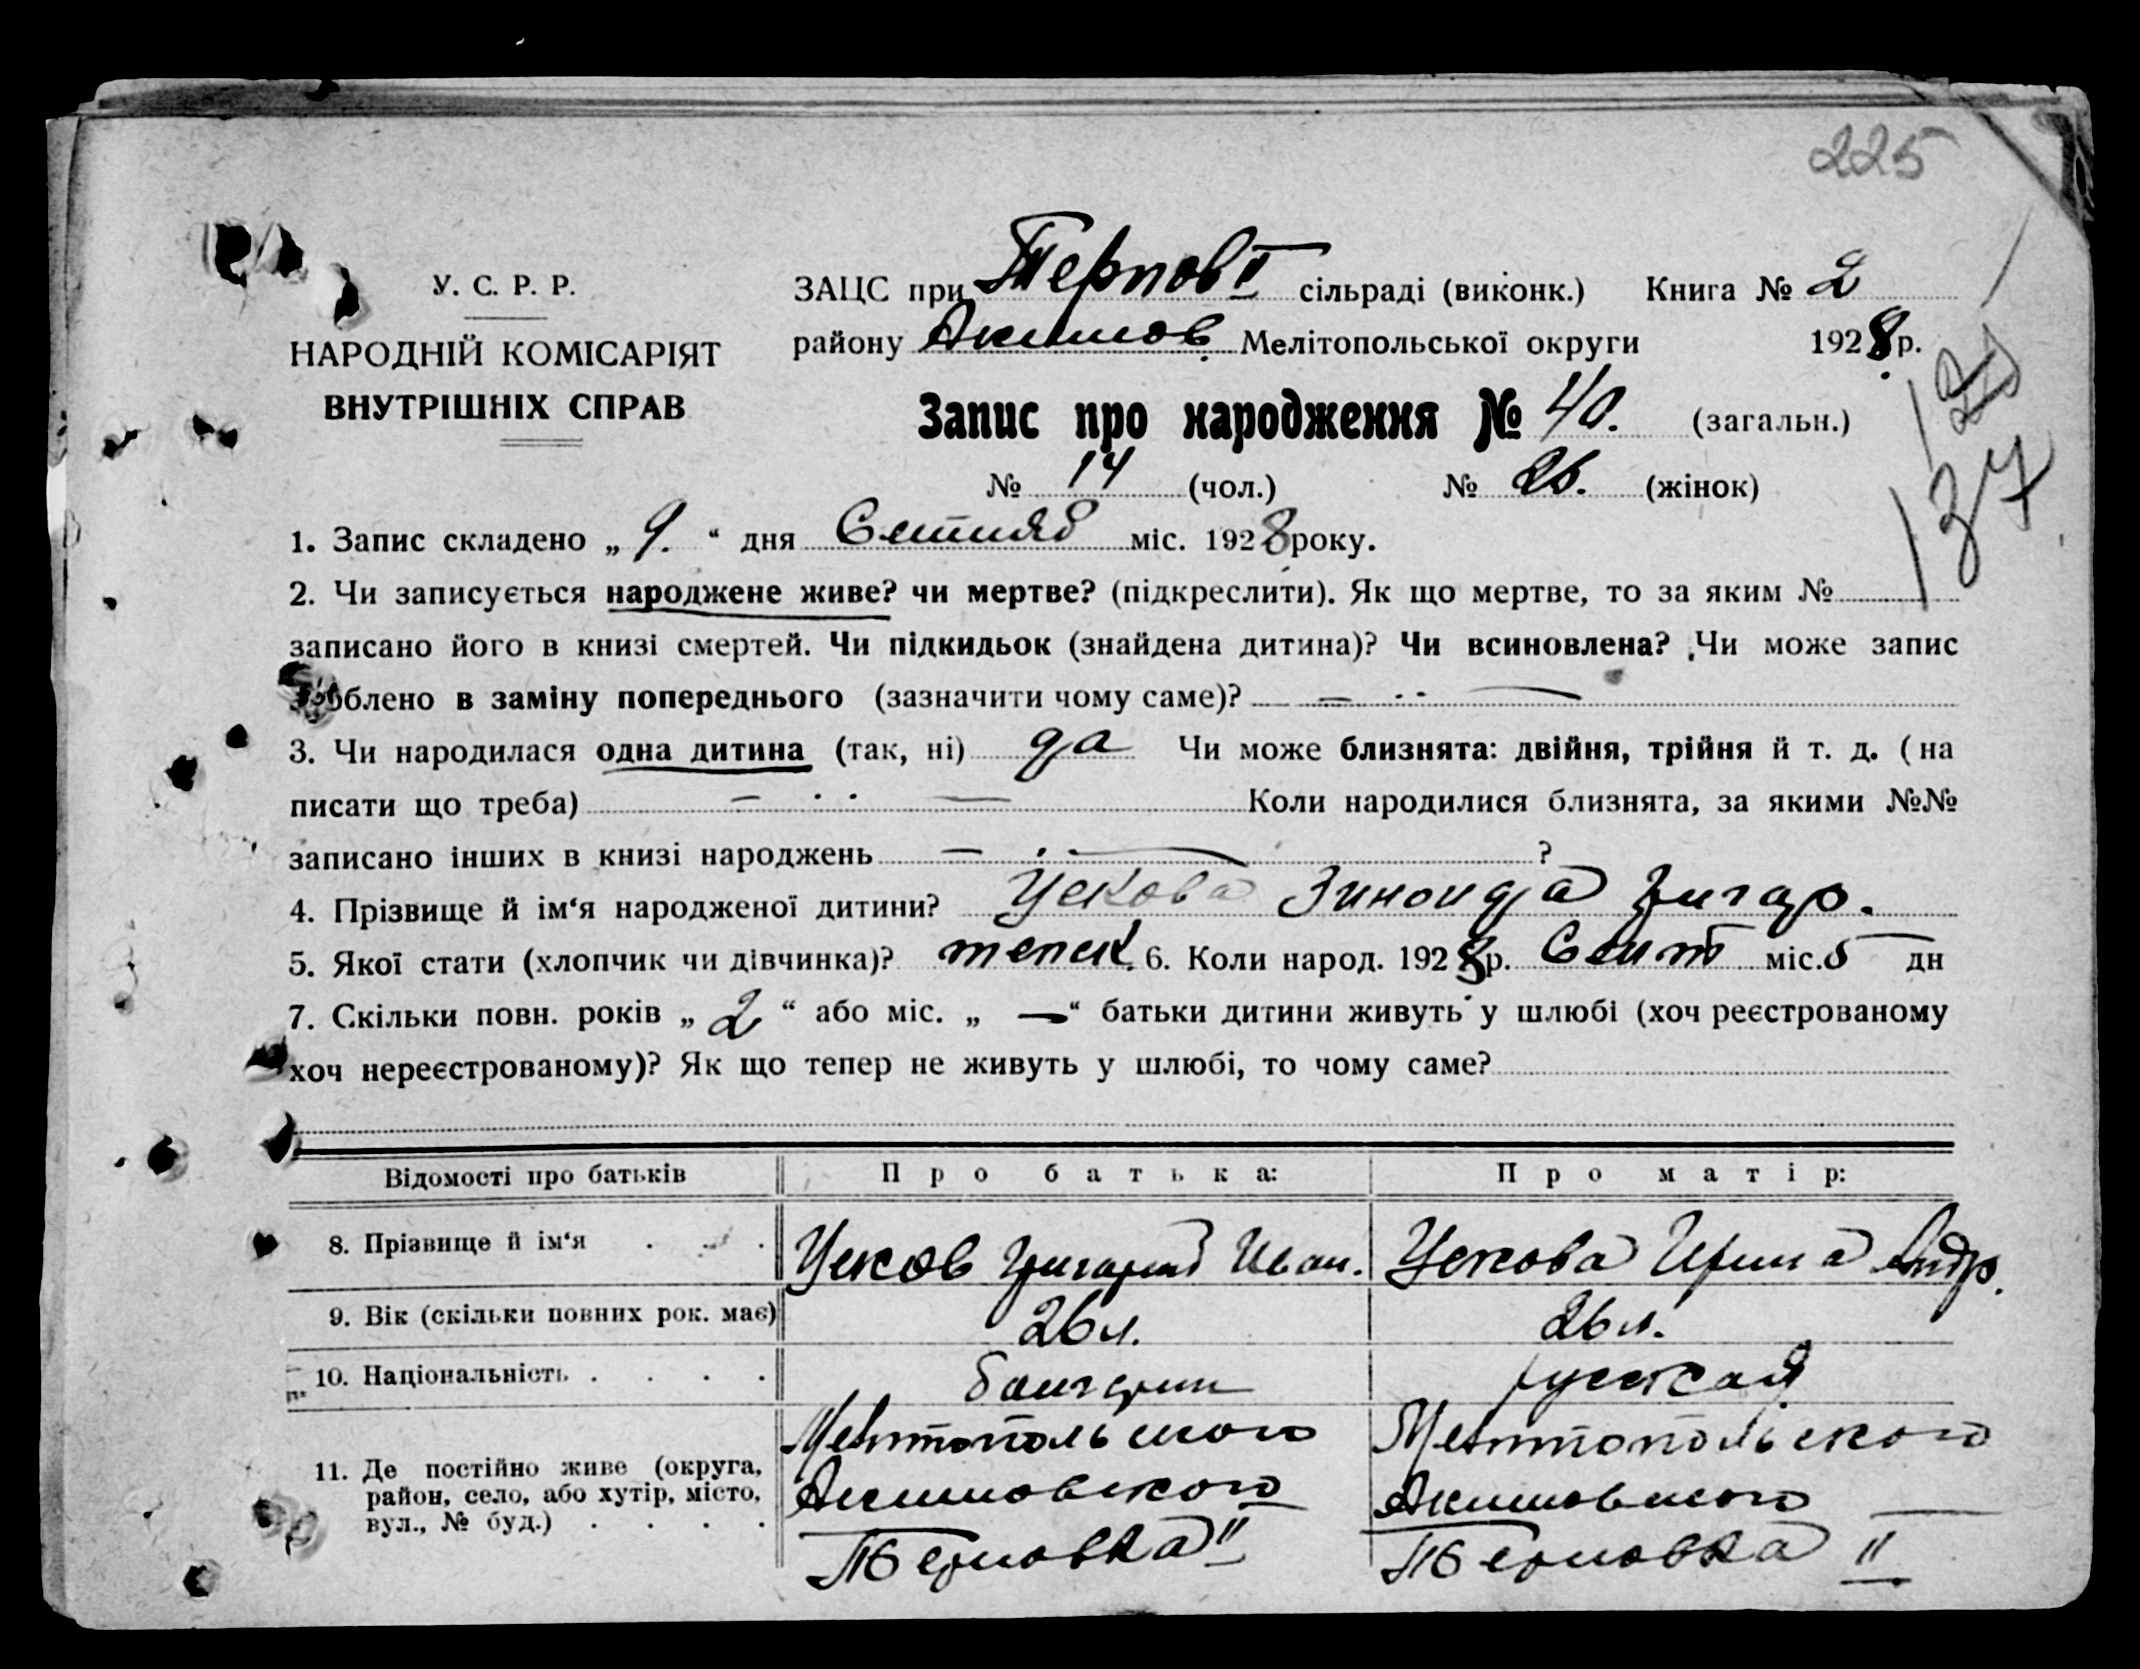 225
У. С. Р. Р.
НАРОДНІЙ КОМІСАРІЯТ
ВНУТРІШНІХ СПРАВ
ЗАЦС при Терпов II сільраді (виконк.) Книга № 2
району Акимов. Мелітопольської округи 1928 р.
Запис про народження № 40. (загальн.)
137
№ 14 (чол.) № 26. (жінок)
1. Запис складено „ 9. “ дня Сентяб міс. 1928 року.
2. Чи записується народжене живе? чи мертве? (підкреслити). Як що мертве, то за яким №
записано його в книзі смертей. Чи підкидьок (знайдена дитина)? Чи всиновлена? Чи може запис
зроблено в заміну попереднього (зазначити чому саме)? —
3. Чи народилася одна дитина (так, ні) да Чи може близнята: двійня, трійня й т. д. (на
писати що треба) — Коли народилися близнята, за якими №№
записано інших в книзі народжень — ?
4. Прізвище й ім‘я народженої дитини? Ускова Зиноида Григор.
5. Якої стати (хлопчик чи дівчинка)? женск. 6. Коли народ. 1928 р. Сент міс. 5 дн
7. Скільки повн. років „ 2 “ або міс. „ — “ батьки дитини живуть у шлюбі (хоч реєстрованому
хоч нереєстрованому)? Як що тепер не живуть у шлюбі, то чому саме?
Відомості про батьків Про батька: Про матір:
8. Прізвище й ім‘я . . . Усков Григорий Иван. Ускова Ирина Андр.
9. Вік (скільки повних рок. має) 26 л. 26 л.
10. Національність . . . . болгарин русская
11. Де постійно живе (округа, район, село, або хутір, місто, вул., № буд.) . . . .
Мелитопольского Мелитопольского
Акимовского Акимовского
Терновка II Терновка II